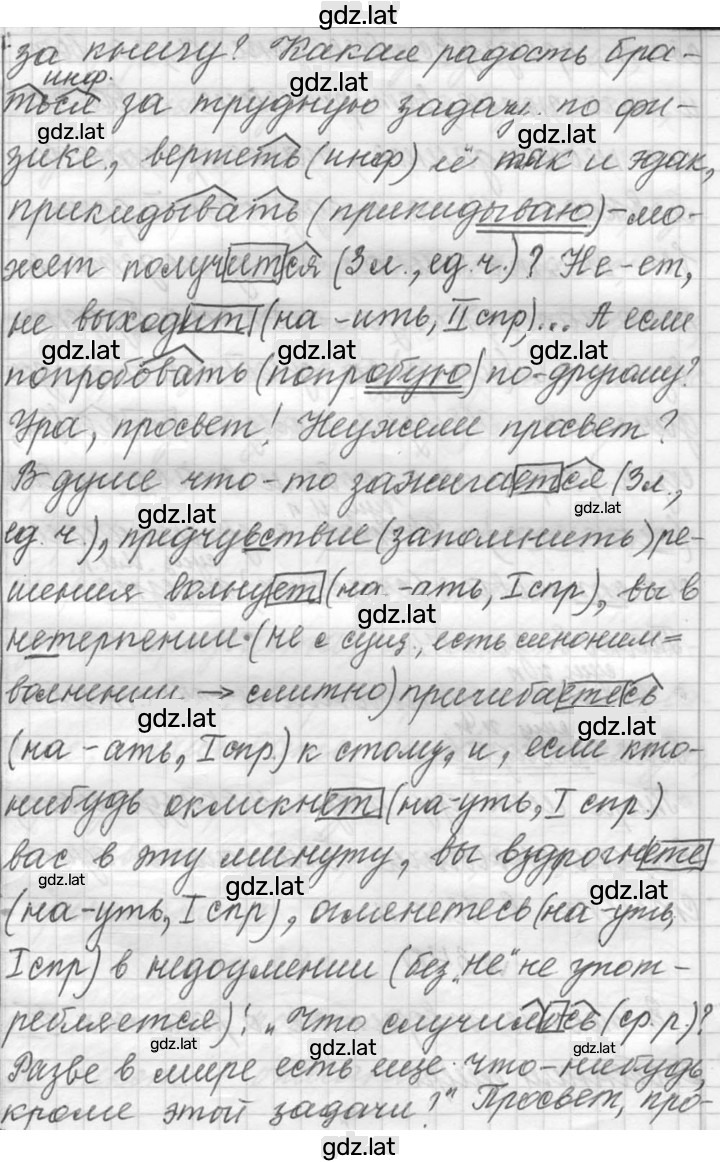 gdz.lat
за книгу? Какая радость бра-
инф.
gdz.lat
ться за трудную задачу по фи-
gdz.lat
gdz.lat
зике, вертеть (инф) её так и эдак,
прикидывать (прикидываю) - мо-
жет получится (3 л., ед. ч.)? Не-ет,
не выходит (на -ить, II спр)... А если
gdz.lat gdz.lat gdz.lat
попробовать (попробую) по-другому?
Ура, просвет! Неужели просвет?
В душе что-то зажигается (3 л.,
gdz.lat
gdz.lat
ед. ч.), предчувствие (запомнить) ре-
шения волнует (на -ать, I спр), вы в
gdz.lat
нетерпении (не с сущ., есть синоним =
волнении → слитно) причибаетесь
gdz.lat gdz.lat
(на - ать, I спр.) к столу, и, если кто-
нибудь окликнет (на -уть, I спр.)
вас в эту минуту, вы вздрогнете
gdz.lat gdz.lat gdz.lat
(на -уть, I спр), оглянетесь (на -уть,
I спр) в недоумении (без „не" не упот-
ребляется)! „Что случилось (ср. р.)?
gdz.lat gdz.lat gdz.lat
Разве в мире есть еще что-нибудь,
кроме этой задачи?" Просвет, про-
gdz.lat